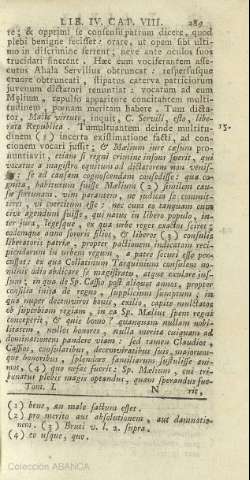 LIB. IV. CAP. VIII. 289
re; & opprimi se consensu patrum dicere, quod
plebi benigne fecisset: orare, ut opem sibi ulti-
mo in discrimine ferrent; neve ante oculos suos
trucidari sinerent. Hæc eum vociferantem asse-
cutus Ahala Servilius obtruncat: respersusque
cruore obtruncati, stipatus caterva patriciorum
juvenum dictatori renuntiat: vocatum ad eum
Mælium, repulso apparitore concitantem multi-
tudinem, pœnam meritam habere. Tum dicta-
tor, Macte virtute, inquit, C. Servili, esto, libe-
rata Republica. Tumultuantem deinde multitu-
dinem (1) incerta existimatione facti, ad con-
cionem vocari jussit; & Mælium jure cæsum pro-
nuntiavit, etiamsi regni crimine insons fuerit, qui
vocatus a magistro equitum ad dictatorem non venis-
se se ad causam cognoscendam consedisse: qua co-
gnita, habiturum fuisse Mælium (2) similem cau-
sæ fortunam. vim parantem, ne judicio se commit-
teret, vi coercitum esse: nec cum eo tanquam cum
cive agendum fuisse, qui natus in libero populo, in-
ter jura, legesque, ex qua urbe reges exactos sciret;
eodemque anno sororis filios, & liberos (3) consulis
liberatoris patriæ, propter pactionem indicatam reci-
piendorum in urbem regum, a patre securi esse
ex qua Collatinum Tarquinium consulem no-
minis odio abdicare se magistratu, atque exulare jus-
sum; in qua de Sp. Cassio post aliquot annos, propter
consilia inita de regno, supplicium sumptum; in
qua nuper decemviros bonis, exilio, capite multatos
ob superbiam regiam, in ea Sp. Mælius spem regni
conceperit, & quis homo? quanquam nullam nobi-
litatem, nullos honores, nulla merita cuiquam ad
dominationem pandere viam: sed tamen Claudios,
Cassios, consulatibus, decemviratibus suis, majorum-
que honoribus, splendore familiarum
(4) quo nefas fuerit: Sp. Mælium, cui tri-
bunatus plebis magis optandus, quam sperandus fue-
Tom. I. N rit,
(1) bene, an male factum esset.
(2) pro merito aut absolutionem, aut damnatio-
nem. (3) Bruti v. l. 2. supra.
(4) eo usque, quo.
15.
Colección ABANCA